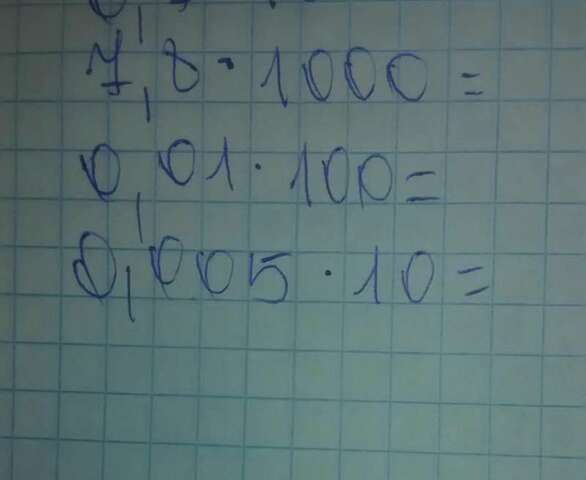 7,8·1000=
0,01·100=
0,005·10=